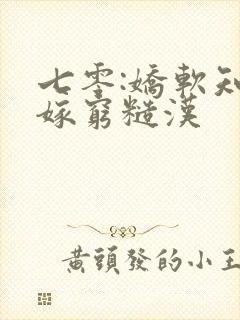 七零:嬌軟知
嫁窮糙漢
黃頭發的小王